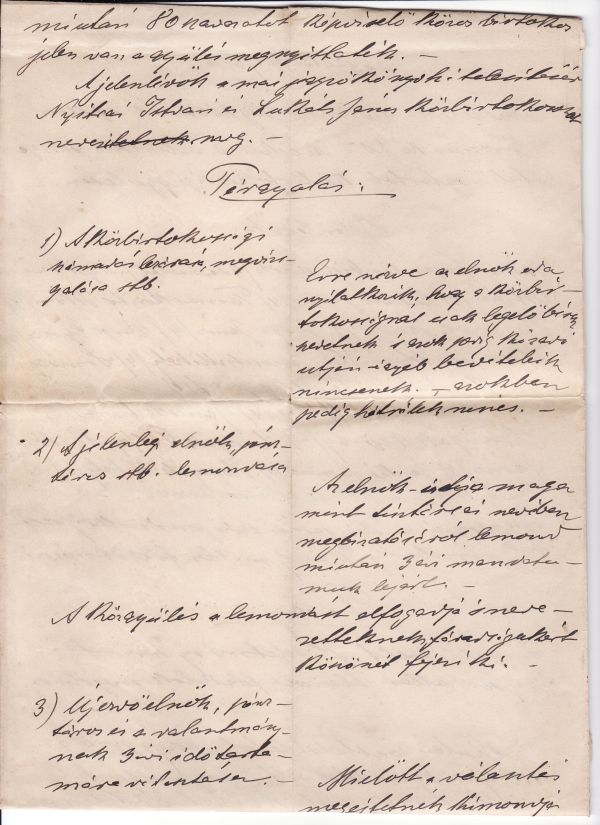 miután 80 szavazatot képviselő közös birtokos
jelen van a gyülés megnyittatik. —
A jelenlévők a mai jegyzőkönyv hitelesítésére
Nyitrai István és Lukáts János közbirtokosokat
nevezitelnek meg. —
Tárgyalás:
1) A közbirtokossági
számadás lezárása, megvizs-
gálása stb.
Erre nézve az elnök oda
nyilatkozik, hogy a közbir-
tokosságnál csak legelő bérek
szedetnek s azok pedig kiadó
utján egyéb bevételeik
nincsenek. — ezekben
pedig hátrálék nincs. —
2) A jelenlegi elnök, pénz-
táros stb. lemondása
Az elnök maga
mint tisztársai nevében
megbizatásáról lemond
miután 3 évi mandátu-
muk lejárt. —
A Közgyülés a lemondást elfogadja s neve-
zetteknek fáradságukért
köszönet fejezi ki. —
3) Ujesvő elnök, pénz-
táros és a választmány-
nak 3 évi időtarta-
mára választása. —
Mielőtt a választás
megejtetnék kimondja